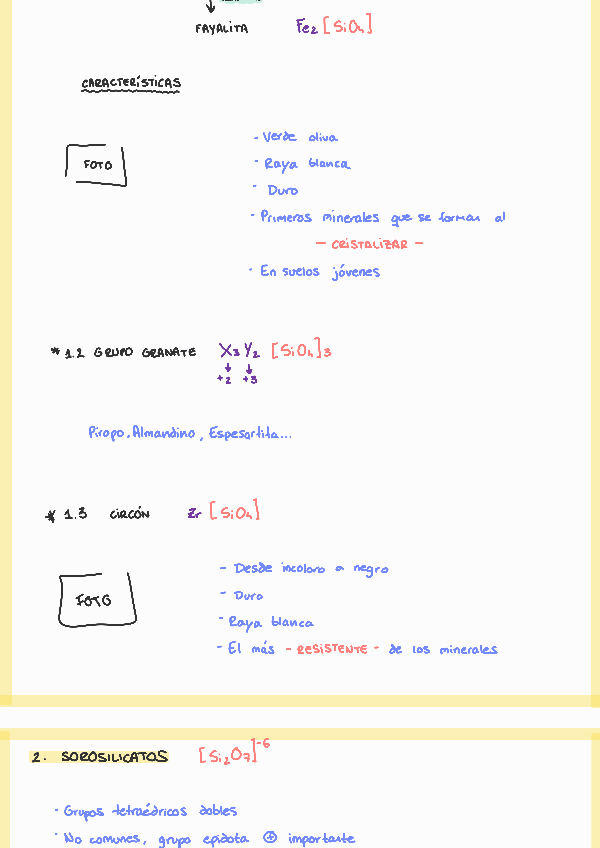 FAYALITA Fe2 [SiO4]
CARACTERÍSTICAS
FOTO
- Verde oliva
- Raya blanca
- Duro
- Primeros minerales que se forman al
- CRISTALIZAR -
- En suelos jóvenes
* 1.2 GRUPO GRANATE X3 Y2 [SiO4]3
+2 +3
Piropo, Almandino, Espesartita...
* 1.3 CIRCÓN Zr [SiO4]
FOTO
- Desde incoloro a negro
- Duro
- Raya blanca
- El más - RESISTENTE - de los minerales
2. SOROSILICATOS [Si2O7]-6
- Grupos tetraédricos dobles
- No comunes, grupo epidota ⊕ importante